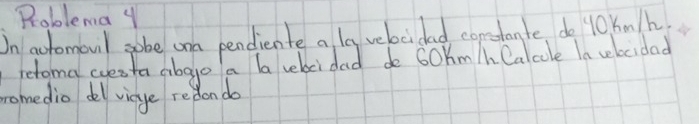 Problema 4
Un automovil sube una pendiente a la velocidad constante de 40 Km/h.
retoma cuesta abajo a la velocidad de 60Km/h Calcule la velocidad
romedio del viaje redondo